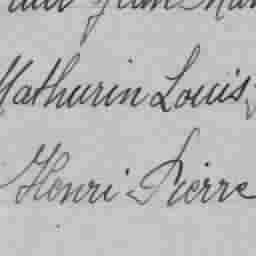 Jean
Mathurin Louis
Henri Pierre